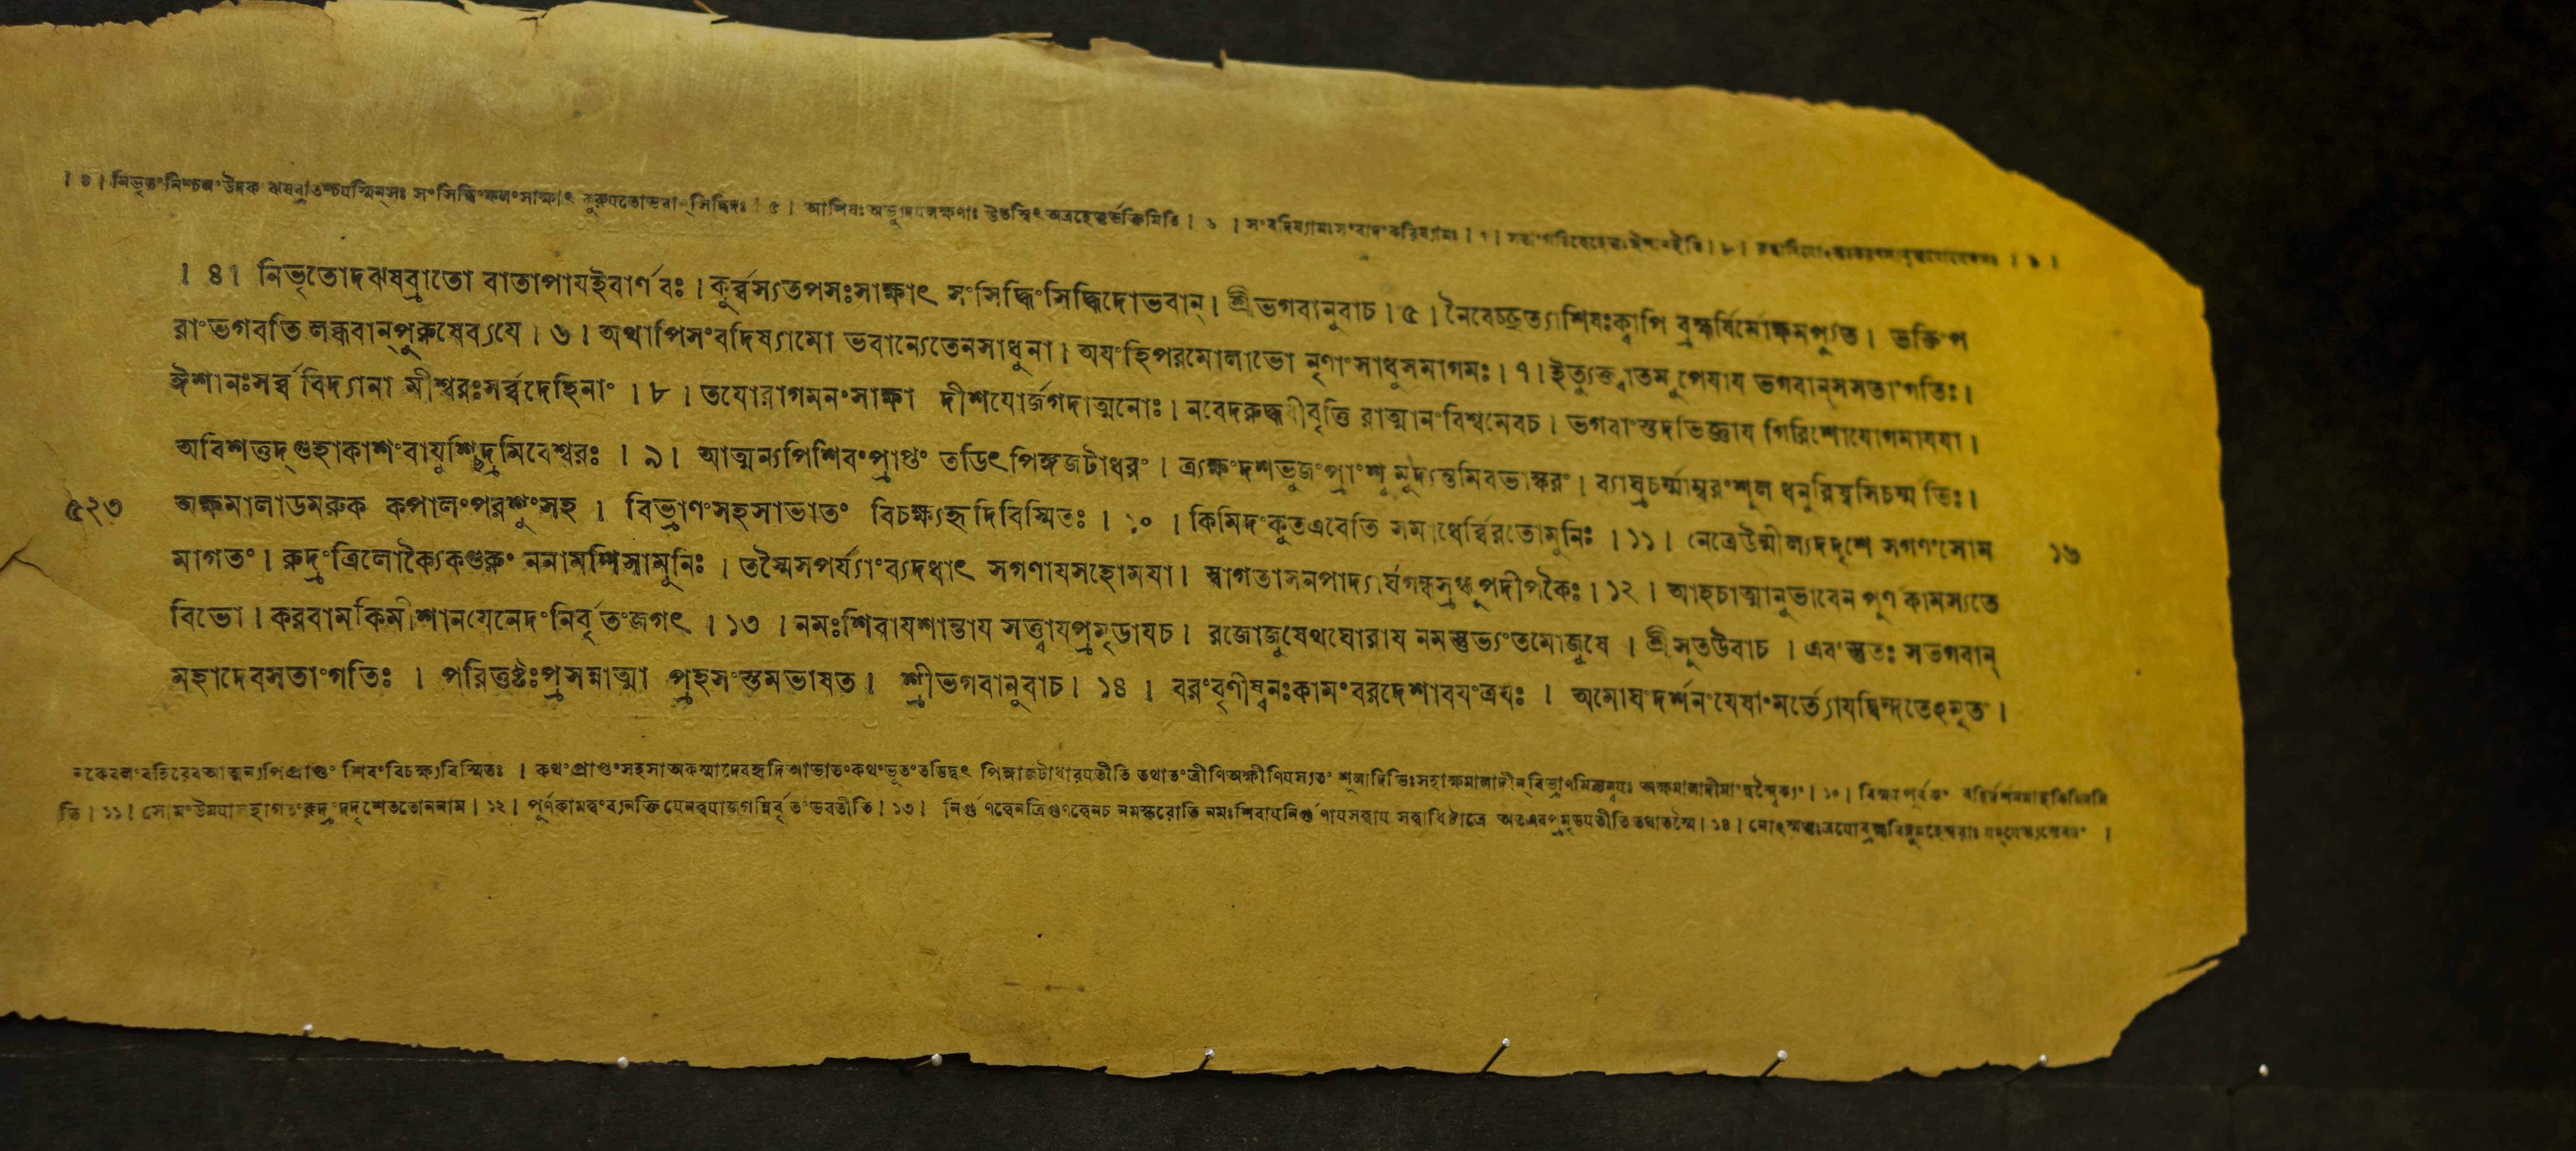 । ৪। নিভৃতং নিশ্চলং উদক ঝষব্রাতশ্চযস্মিন্ সঃ সংসিদ্ধিংফলংসাক্ষাৎ । ৫। আশিষঃ অভ্যুদযলক্ষণাঃ উতস্বিৎ অত্রহেতুর্ভক্তিমিতি । ৬ । সংবদিষ্যামঃসংবাদংকরিষ্যামঃ । ৭। । ৮।
। ৪। নিভৃতোদঝষব্রাতো বাতাপাযইবার্ণবঃ। কুর্ব্বস্যতপসঃসাক্ষাৎ সংসিদ্ধিংসিদ্ধিদোভবান্। শ্রীভগবানুবাচ। ৫। নৈবেচ্ছত্যাশিষঃক্বাপি ব্রহ্মর্ষির্মোক্ষমপ্যুত। ভক্তিংপ
রাংভগবতি লব্ধবান্পুরুষেব্যযে। ৬। অথাপিসংবদিষ্যামো ভবান্যেতেনসাধুনা। অযংহিপরমোলাভো নৃণাংসাধুসমাগমঃ। ৭। ইত্যুক্ত্বাতমুপেযায ভগবান্সসতাংগতিঃ।
ঈশানঃসর্ব্ববিদ্যানা মীশ্বরঃসর্ব্বদেহিনাং । ৮। তযোরাগমনংসাক্ষা দীশযোর্জগদাত্মনোঃ। নবেদরুদ্ধধীবৃত্তি রাত্মানংবিশ্বমেবচ। ভগবাংস্তদভিজ্ঞায গিরিশোযোগমাযযা।
অবিশত্তদ্গুহাকাশংবাযুশ্ছিদ্রমিবেশ্বরঃ । ৯। আত্মন্যপিশিবংপ্রাপ্তং তডিৎপিঙ্গজটাধরং। ত্র্যক্ষংদশভুজংপ্রাংশুমুদ্যন্তমিবভাস্করং। ব্যাঘ্রচর্ম্মাম্বরংশূল ধনুরিষ্বসিচর্ম্মভিঃ।
৫২৩ অক্ষমালাডমরুক কপালংপরশুংসহ । বিভ্রাণংসহসাভাতং বিচক্ষ্যহৃদিবিস্মিতঃ । ১০ । কিমিদংকুতএবেতি সমাধের্ব্বিরতোমুনিঃ । ১১। নেত্রেউন্মীল্যদদৃশে সগণংসোম ১৬
মাগতং। রুদ্রংত্রিলোক্যৈকগুরুং ননামশিরসামুনিঃ । তস্মৈসপর্য্যাংব্যদধাৎ সগণাযসহোমযা। স্বাগতাসনপাদ্যার্ঘগন্ধস্রগ্ধূপদীপকৈঃ। ১২। আহচাত্মানুভাবেন পূর্ণকামস্যতে
বিভো। করবামকিমীশানযেনেদংনির্বৃতংজগৎ । ১৩ । নমঃশিবাযশান্তায সত্ত্বাযপ্রমৃডাযচ। রজোজুষেথঘোরায নমস্তুভ্যংতমোজুষে । শ্রীসূতউবাচ । এবংস্তুতঃ সভগবান্
মহাদেবসতাংগতিঃ । পরিতুষ্টঃপ্রসন্নাত্মা প্রহসংস্তমভাষত। শ্রীভগবানুবাচ। ১৪ । বরংবৃণীষ্বনঃকামংবরদেশাবযংত্রযঃ । অমোঘংদর্শনংযেষাংমর্ত্ত্যোযদ্বিন্দতেঽমৃতং।
নকেবলংবহিরেবআত্মন্যপিপ্রাপ্তং শিবংবিচক্ষ্যবিস্মিতঃ । কথংপ্রাপ্তংসহসাঅকস্মাদেবহৃদিআভাতংকথংভূতংতডিদ্বৎ পিঙ্গজটাধারযতীতি তথাতংত্রীণিঅক্ষীণিযস্যতং শূলাদিভিঃসহাক্ষমালাদীন্বিভ্রাণমিত্যন্বযঃ । ১০।
তি। ১১। সোমংউমযাসহাগতংরুদ্রং দদৃশেততোননাম। ১২। পূর্ণকামত্বংব্যনক্তি যেনত্বযাজগন্নির্বৃতংভবতীতি। ১৩। নির্গুণত্বেনত্রিগুণত্বেনচ নমস্করোতি নমঃশিবাযনির্গুণাযসত্ত্বায সত্ত্বাধিষ্ঠাত্রে অতএবপ্রমৃডযতীতিতথাতস্মৈ। ১৪।